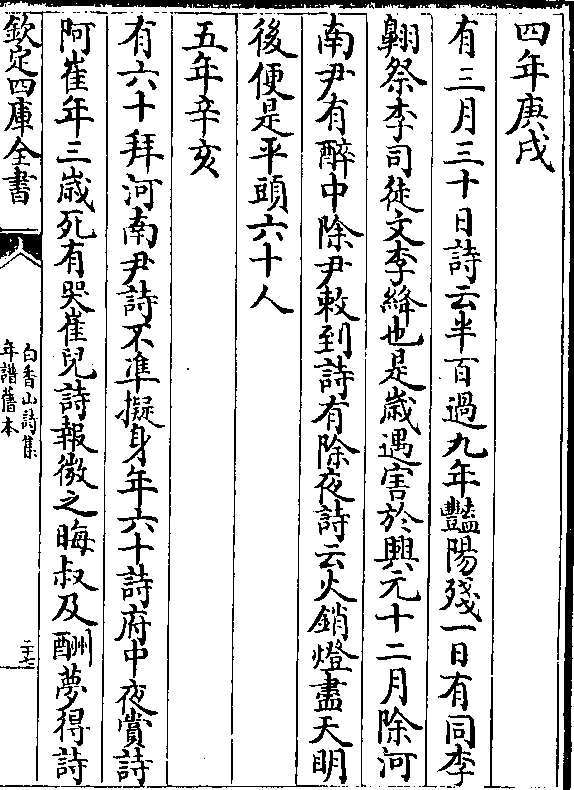 四年庚戌
有三月三十日詩云半百過九年豔陽殘一日有同李
翺祭李司徒文李絳也是歲遇害於興元十二月除河
南尹有醉中除尹敕到詩有除夜詩云火銷燈盡天明
後便是平頭六十人
五年辛亥
有六十拜河南尹詩不準擬身年六十詩府中夜賞詩
阿崔年三歲死有哭崔兒詩報微之晦叔及酬夢得詩
欽定四庫全書
白香山詩集
年譜舊本
二十七